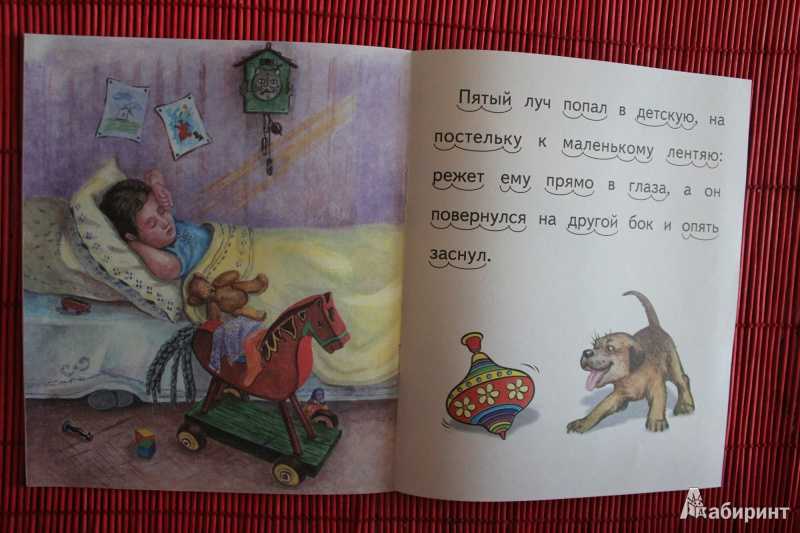 Пятый луч попал в детскую, на
постельку к маленькому лентяю:
режет ему прямо в глаза, а он
повернулся на другой бок и опять
заснул.
Лабиринт